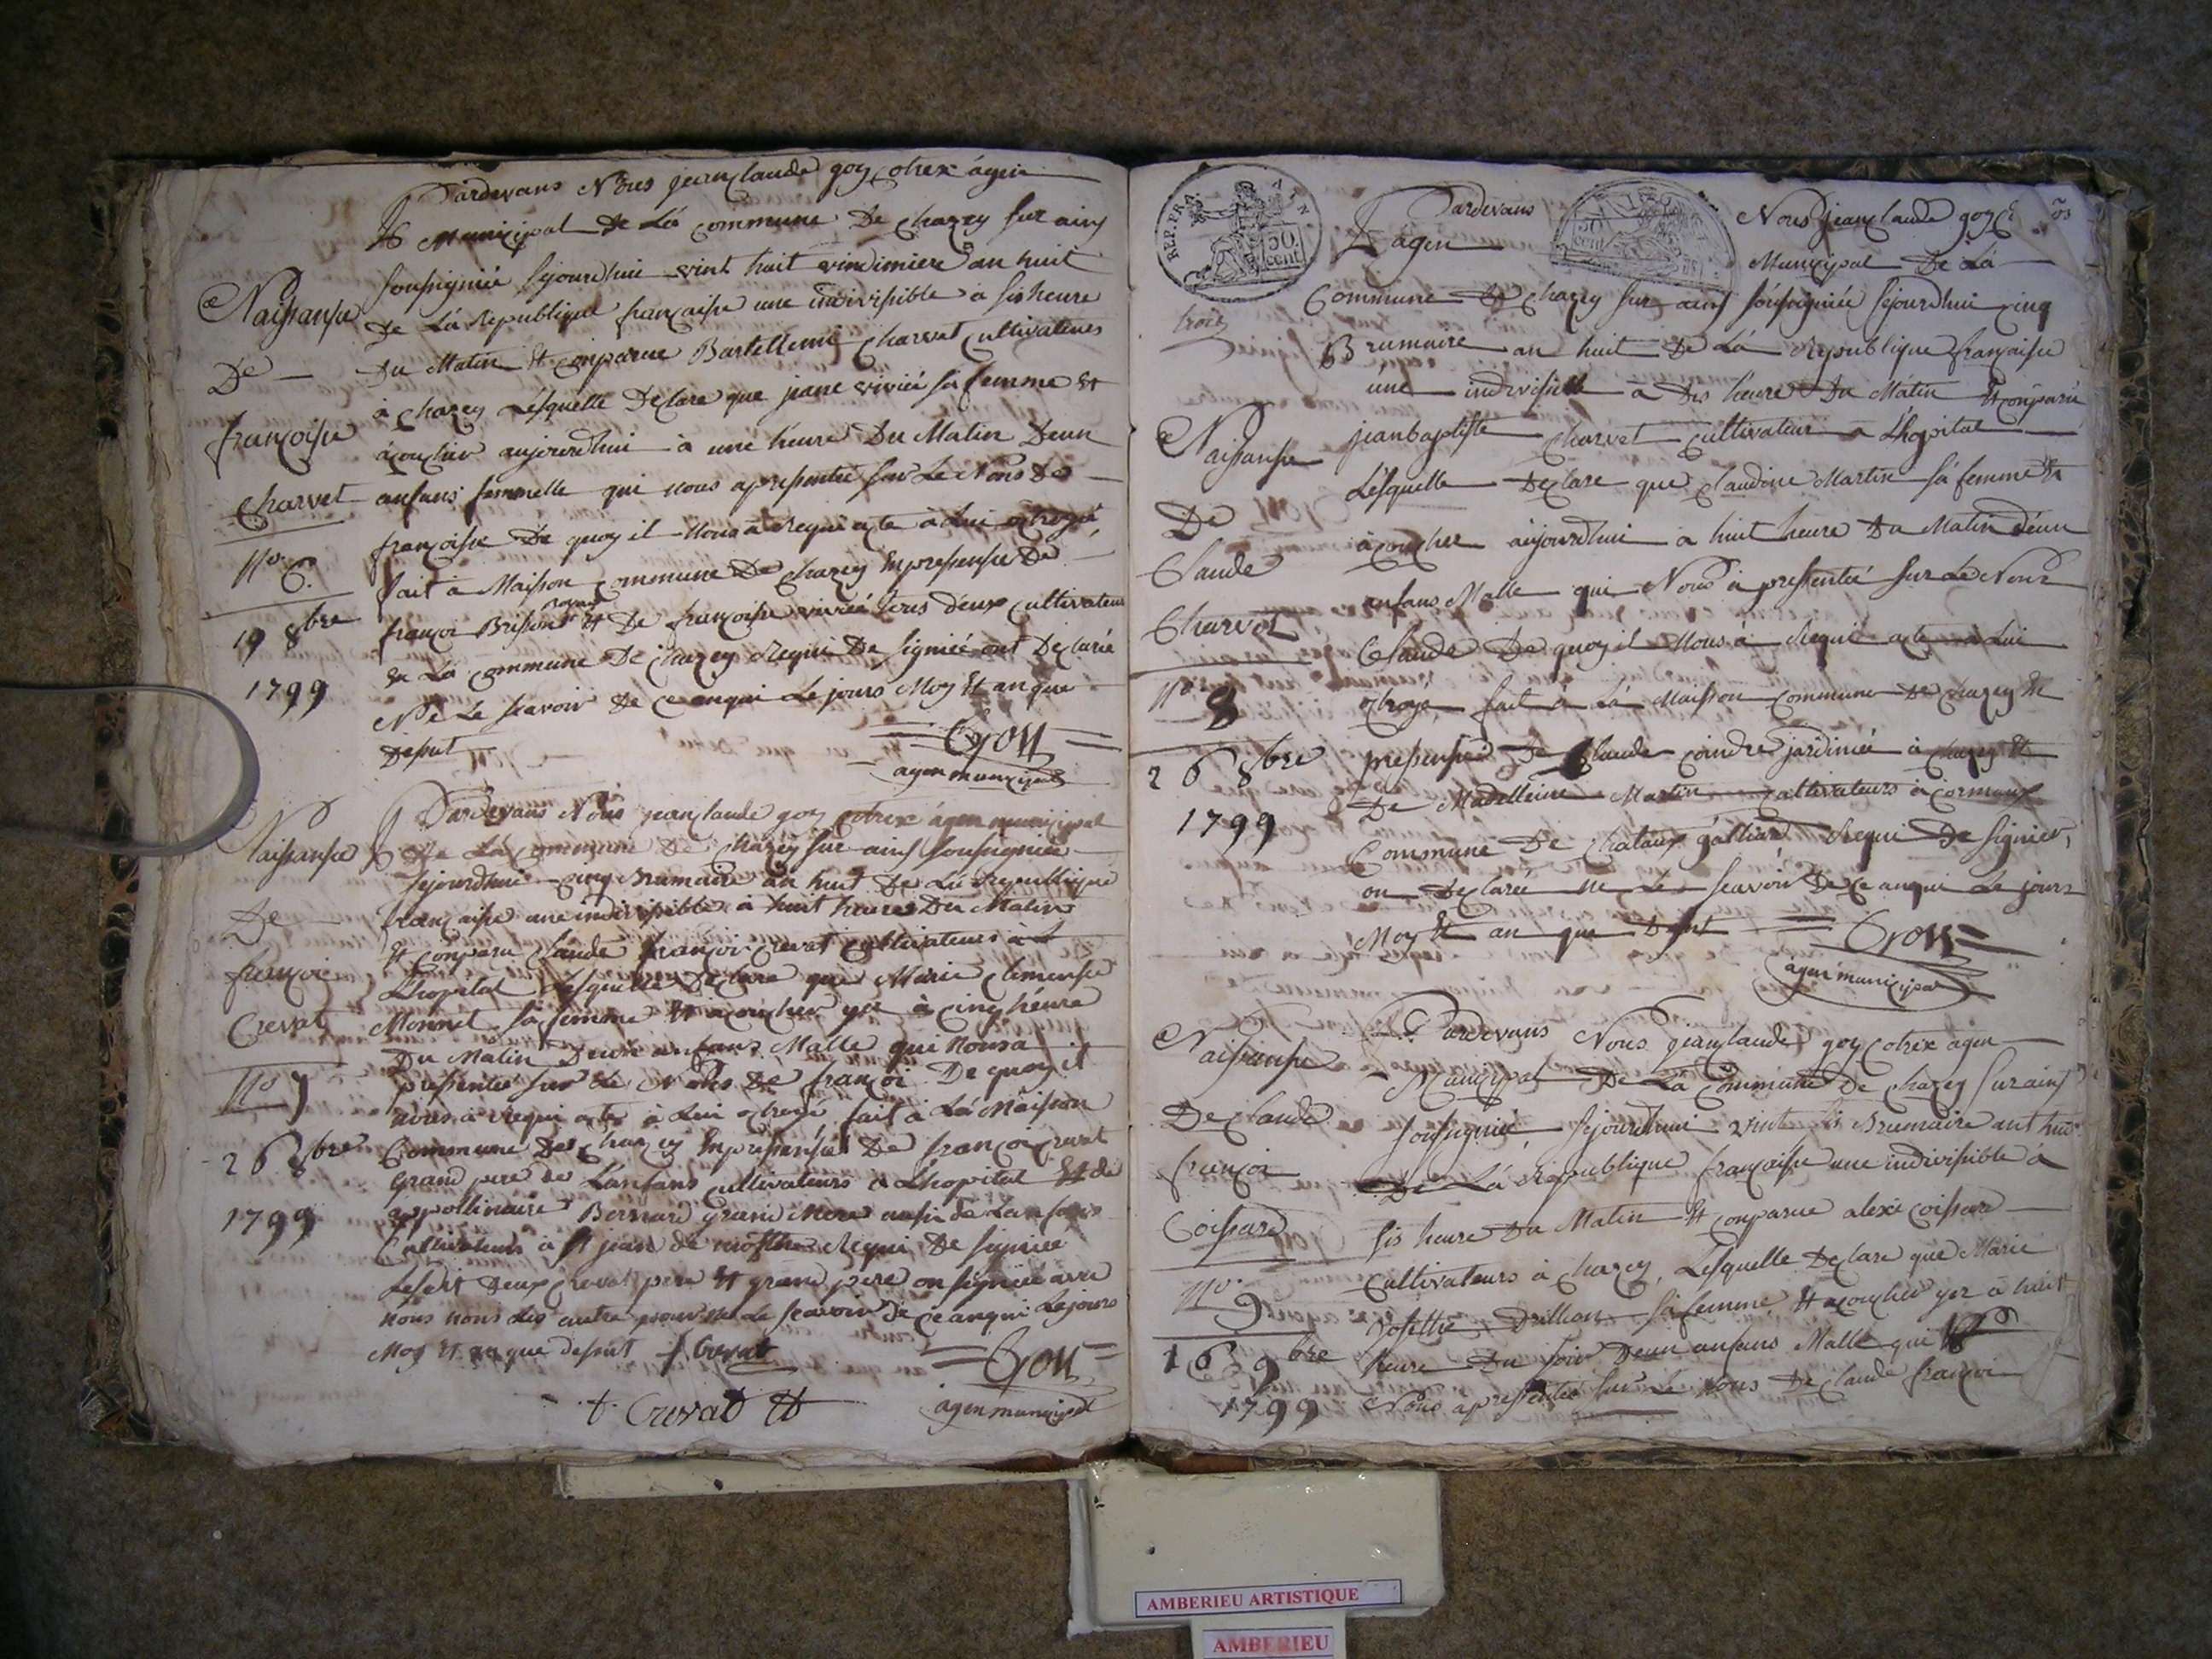 Pardevans Nous jean claude goy cotrex agen
Municipal de La commune De chazey sur ains
soussigniée sejourdhui vint huit vindimiere an huit
De La Republique française une indivisible a sis heure
Du Matin Et conparue Bartellemie charvat cultivateurs
à chazey Lesquelle Declare que jane vivié sa femme Et
acoucher aujourdhui à une heure Du Matin Deun
anfans femmelle qui nous apressentée sur Le Nons De
françoise De quoy il Nous à Requi acte à Lui octroyé
fait à Maison commune De chazey En pressensse De
françoi Brisson Et De françoise vivié tous deux cultivateur
En La commune De chazey Requi De signiée ont Declarée
Ne Le scavoir De ce anqui Le jours Moy Et an que
Desut
Goy
agen municipal
Naissansse
De
françoise
Charvet
No 6.
19 8bre
1799
Pardevans Nous jean claude goy cotrex agen municipal
De La commune De chazey sur ains soussigniée
sejourdhui cinq Brumaire an huit De La Republique
française une indivisible à huit heures Du Matin
Et conparu claude françoi crevat cultivateurs à
Lhopital Lesquelle Declare que Marie clemensse
Monnet sa femme Et acoucher yer à cinq heure
Du Matin Deun anfans Malle que Nous a
pressentée sur Le Nons De françoi De quoy il
nous à Requi acte à Lui octroyé fait à La Maison
Commune De chazey En pressensse De françoi crevat
Grand pere de Lanfans cultivateurs à Lhopital Et de
appollinaire Bernard Grand Mere ausi de Lanfans
Cultivateurs à st jean de Requi De signiée
Lesdit Deux crevat pere Et grand pere on signiée avec
Nous nons Les autre pour ne Le scavoir De ce anqui Le jours
Moy Et an que desut f Crevat
Goy
agen municipal
t. Crevat
Naissansse
De
françoi
Crevat
No 7
26 8bre
1799
REP. FRA.
50 cent
AIN
Pardevans Nous jean claude goy
L agen Municipal De La
Commune De chazey sur ains soussigniée sejourdhui cinq
Brumaire an huit De La Republique française
une indivisible à Dis heure Du Matin Et conparu
jean baptiste charvet cultivateur a Lhopital
Lesquelle Declare que claudine Martin sa femme Et
acoucher aujourdhui a huit heure Du Matin deun
anfans Malle qui Nous à pressentée sur Le Nons
Claude De quoy il Nous à Requi acte a Lui
octroyé fait à La Maison commune De chazey En
pressensse De Claude coindre jardinié à chazey Et
De Madelleine Martin cultivateurs à cormoux
Commune De chataux galliard Requi De signier,
on Declarée ne Le scavoir De ce anqui Le jours
Moy Et an que Desut
Goy
agen municipal
trois
Naissansse
De
Claude
Charvet
No 8
26 8bre
1799
Pardevans Nous jean claude goy cotrex agen
Municipal De La Commune De chazey sur ains
soussigniée sejourdhui vint sis Brumaire ant huit
De La Republique française une indivisible à
sis heure Du Matin Et conparue alexi coissard
Cultivateurs à chazey, Lesquelle Declare que Marie
Josethe Drillion sa femme Et acoucher yer a huit
heure Du soir Deun anfans Malle que
Nous apressentée sur Le Nons De claude françoi
Naissansse
De claude
françoi
Coissard
No 9
16 9bre
1799
AMBERIEU ARTISTIQUE
AMBERIEU